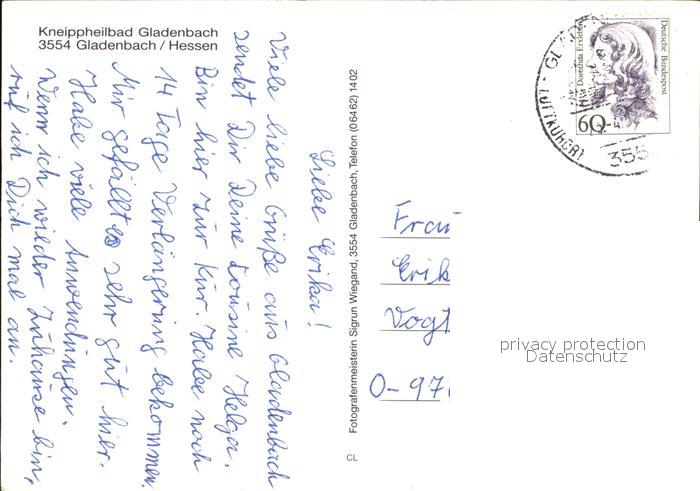 Kneippheilbad Gladenbach
3554 Gladenbach / Hessen
Liebe Erika!
Viele liebe Grüße aus Gladenbach
sendet Dir Deine Cousine Helga.
Bin hier zur Kur. Habe noch
14 Tage Verlängerung bekommen.
Mir gefällt es sehr gut hier.
Habe viele Anwendungen.
Wenn ich wieder Zuhause bin,
ruf ich Dich mal an.
Fotografenmeisterin Sigrun Wiegand, 3554 Gladenbach, Telefon (064 62) 14 02
CL
Deutsche Bundespost
60
LUFTKURORT
355
Frau
Erik
Vogt
O-97
privacy protection
Datenschutz